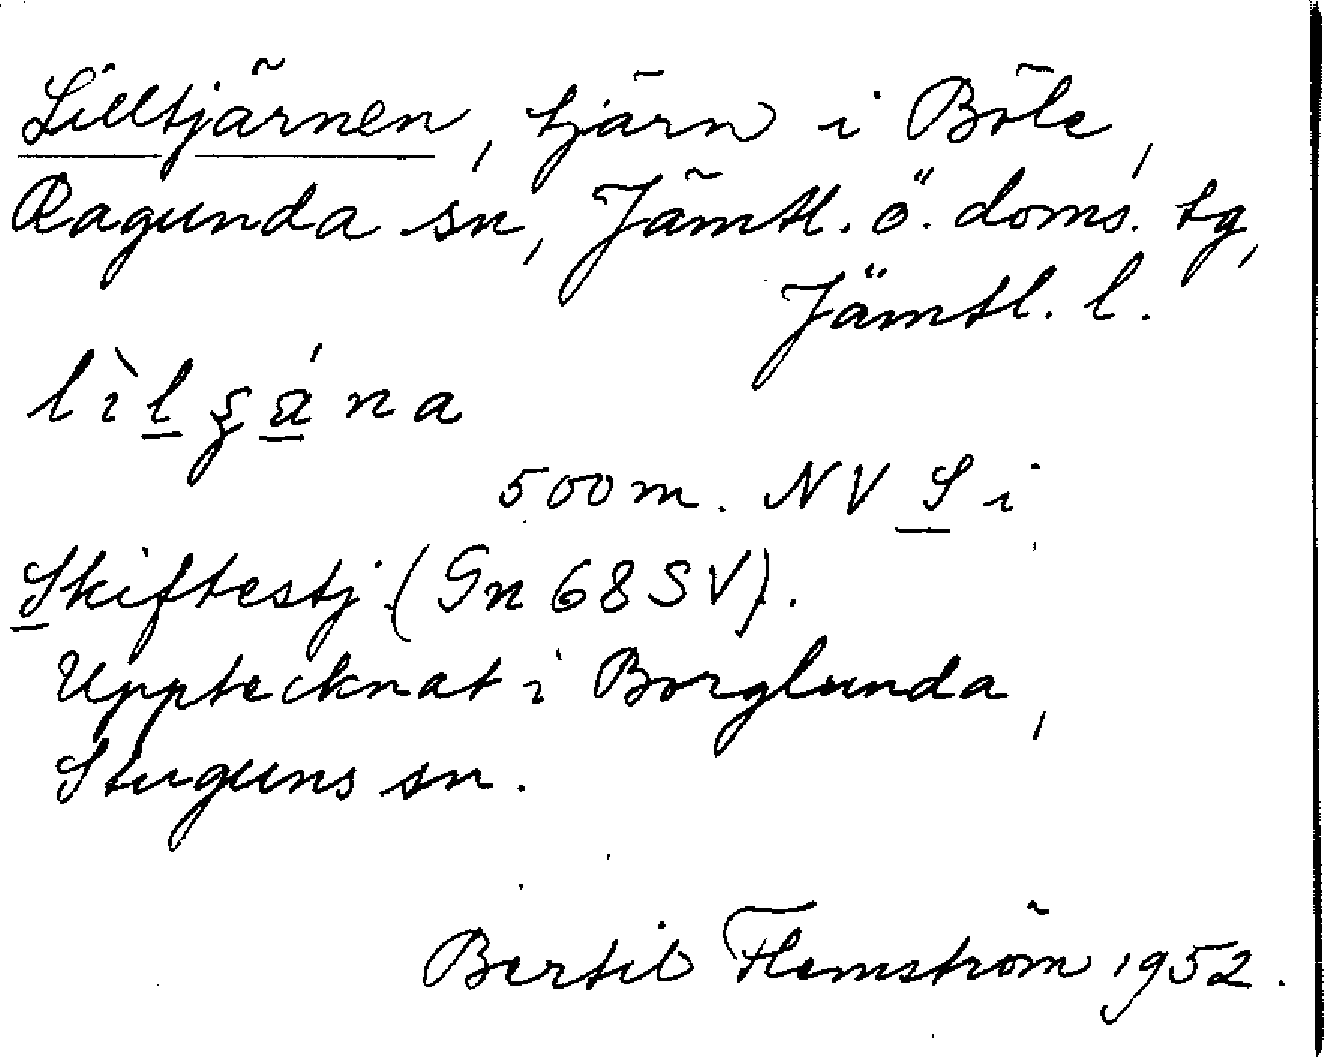 Lilltjärnen, tjärn i Böle,
Ragunda sn, Jämtl. ö. doms. tg,
Jämtl. l.
500 m. NV S i
Skiftestj. (Gn 68 SV).
Upptecknat i Borglunda,
Stuguns sn.
Bertil Flemström 1952.